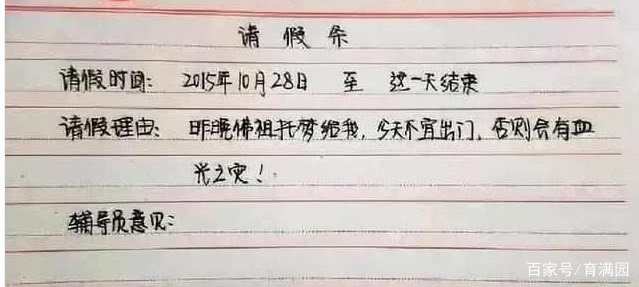 请假条
请假时间: 2015年10月28日 至 这一天结束
请假理由: 昨晚佛祖托梦给我,今天不宜出门,否则会有血
光之灾!
辅导员意见:
百家号/育满园